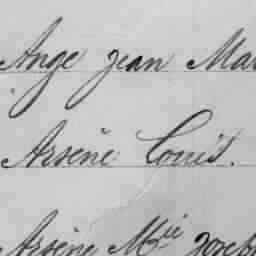 Ange Jean Mar
Arsène Louis.
Arsène M.ie Joseph